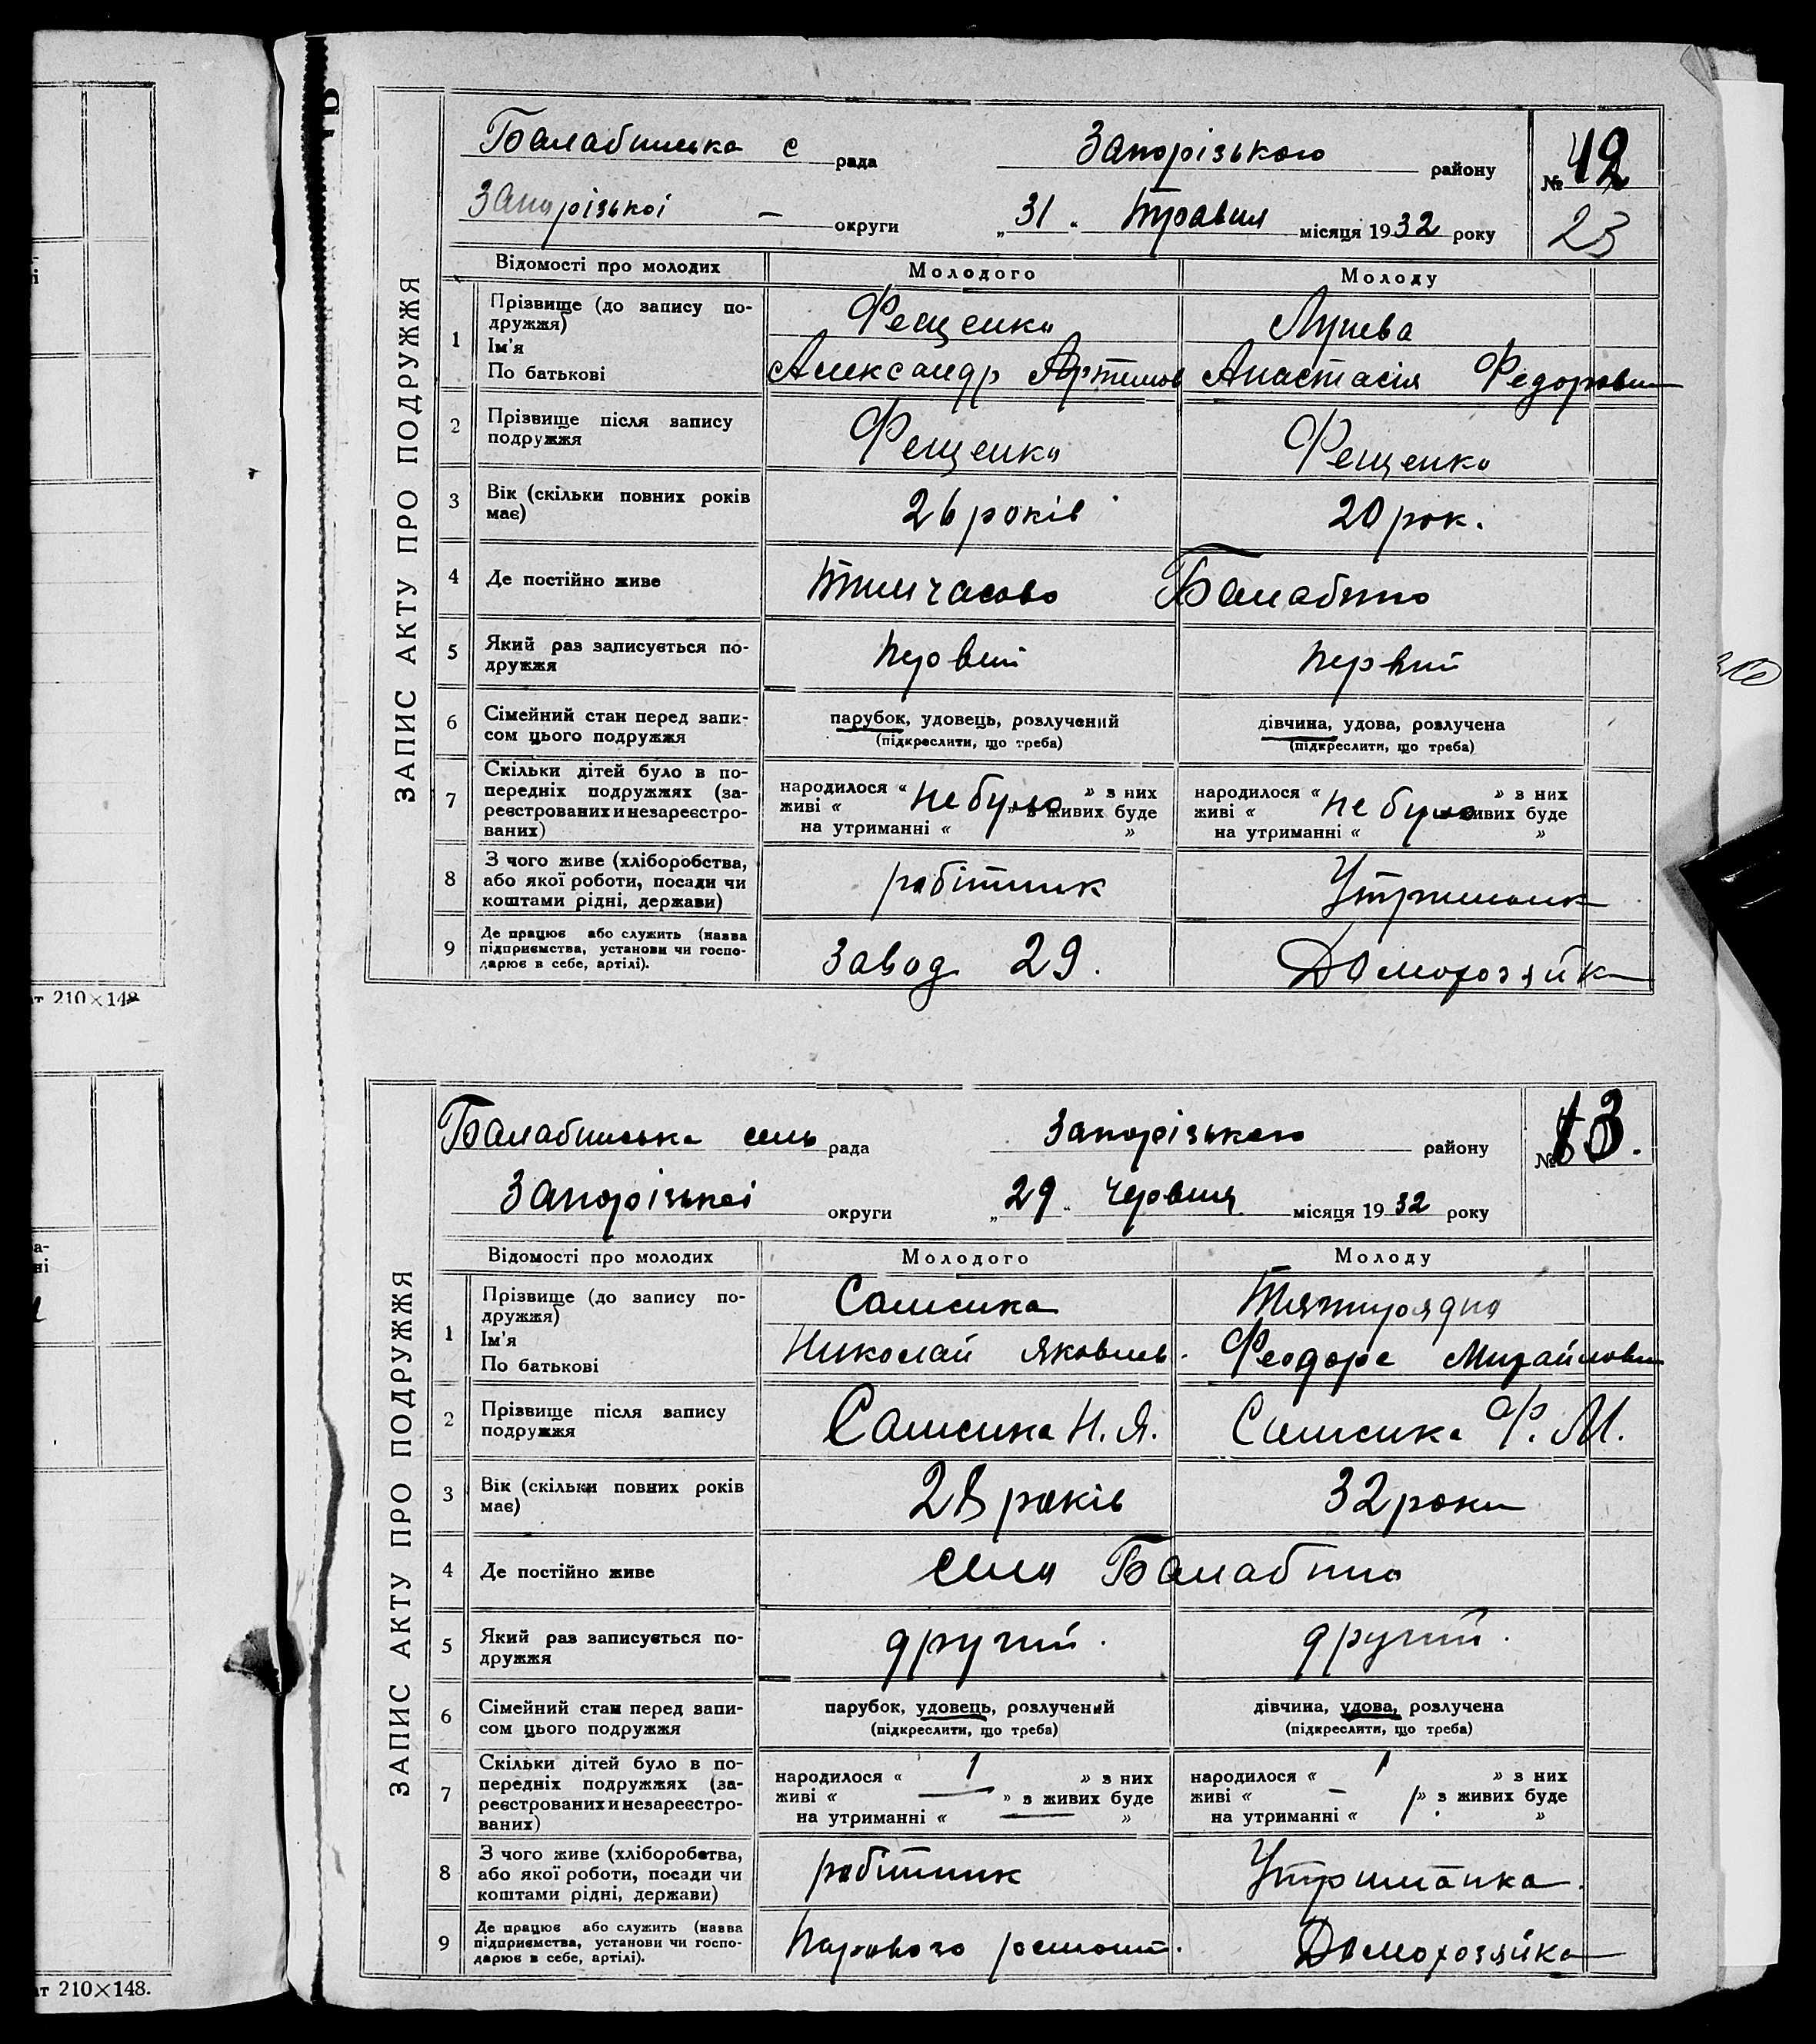 ЗАПИС АКТУ ПРО ПОДРУЖЖЯ
Балабинська с рада Запорізького району № 42
Запорізької — округи „31“ травня місяця 1932 року 23
Відомості про молодих Молодого Молоду
1 Прізвище (до запису по-
дружжя) Фещенко Лунева
Ім'я
По батькові Александр Артемов Анастасія Федоровн
2 Прізвище після запису
подружжя Фещенко Фещенко
3 Вік (скільки повних років
має) 26 років 20 рок.
4 Де постійно живе тимчасово Балабино
5 Який раз записується по-
дружжя первий первий
6 Сімейний стан перед запи-
сом цього подружжя парубок, удовець, розлучений дівчина, удова, розлучена
(підкреслити, що треба) (підкреслити, що треба)
7 Скільки дітей було в по-
передніх подружжях (за-
реєстрованих и незареєстро-
ваних) народилося « не було » з них народилося « не було » з них
живі « » з живих буде живі « живих буде
на утриманні « » на утриманні « »
8 З чого живе (хліборобства,
або якої роботи, посади чи
коштами рідні, держави) робітник Утриманк
9 Де працює або служить (назва
підприємства, установи чи госпо-
дарює в себе, артілі). завод 29. Доморозяйк
ат 210×148
ЗАПИС АКТУ ПРО ПОДРУЖЖЯ
Балабинська сель рада Запорізького району № 43.
Запорізької округи „29“ червня місяця 1932 року
Відомості про молодих Молодого Молоду
1 Прізвище (до запису по-
дружжя)
Ім'я
По батькові Николай Яковлев. Феодора Михайловн
2 Прізвище після запису
подружжя Н. Я. Ф. М.
3 Вік (скільки повних років
має) 28 років 32 роки
4 Де постійно живе село Балабино
5 Який раз записується по-
дружжя другий. другий.
6 Сімейний стан перед запи-
сом цього подружжя парубок, удовець, розлучений дівчина, удова, розлучена
(підкреслити, що треба) (підкреслити, що треба)
7 Скільки дітей було в по-
передніх подружжях (за-
реєстрованих и незареєстро-
ваних) народилося « 1 » з них народилося « 1 » з них
живі « — » з живих буде живі « — » з живих буде
на утриманні « — » на утриманні « 1 »
8 З чого живе (хліборобства,
або якої роботи, посади чи
коштами рідні, держави) робітник Утриманка.
9 Де працює або служить (назва
підприємства, установи чи госпо-
дарює в себе, артілі). Доморозяйка
ат 210×148.